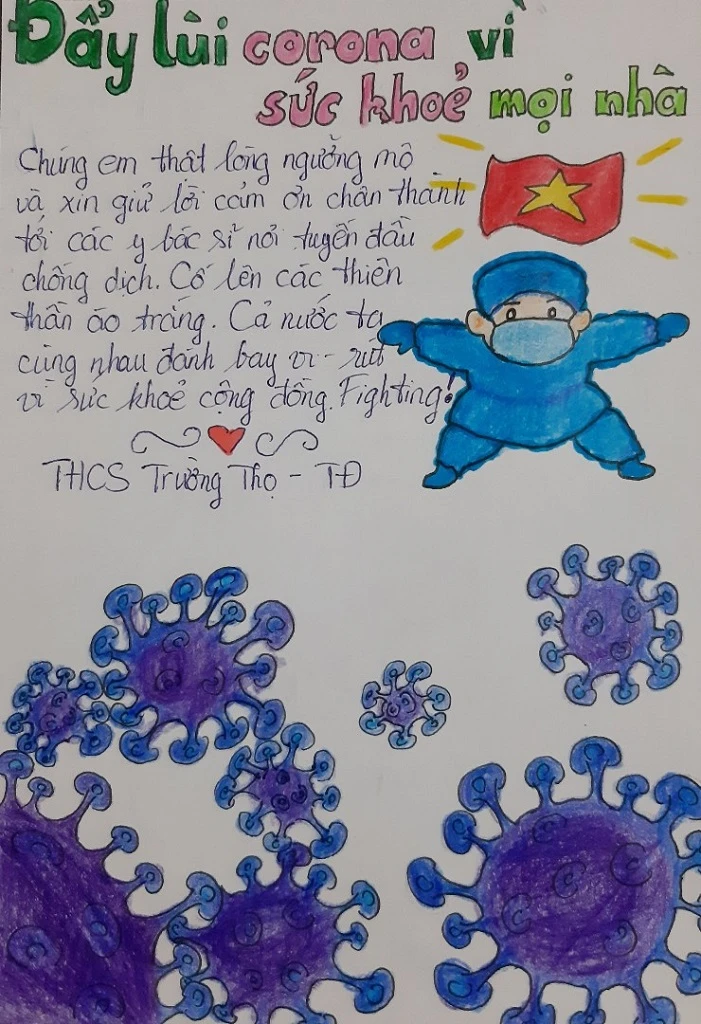 Đẩy lùi corona vì
sức khoẻ mọi nhà
Chúng em thật lòng ngưỡng mộ
và xin giử lời cảm ơn chân thành
tới các y bác sĩ nơi tuyến đầu
chống dịch. Cố lên các thiên
thần áo trắng. Cả nước ta
cùng nhau đánh bay vi-rút
vì sức khoẻ cộng đồng. Fighting!
THCS Trường Thọ - TĐ